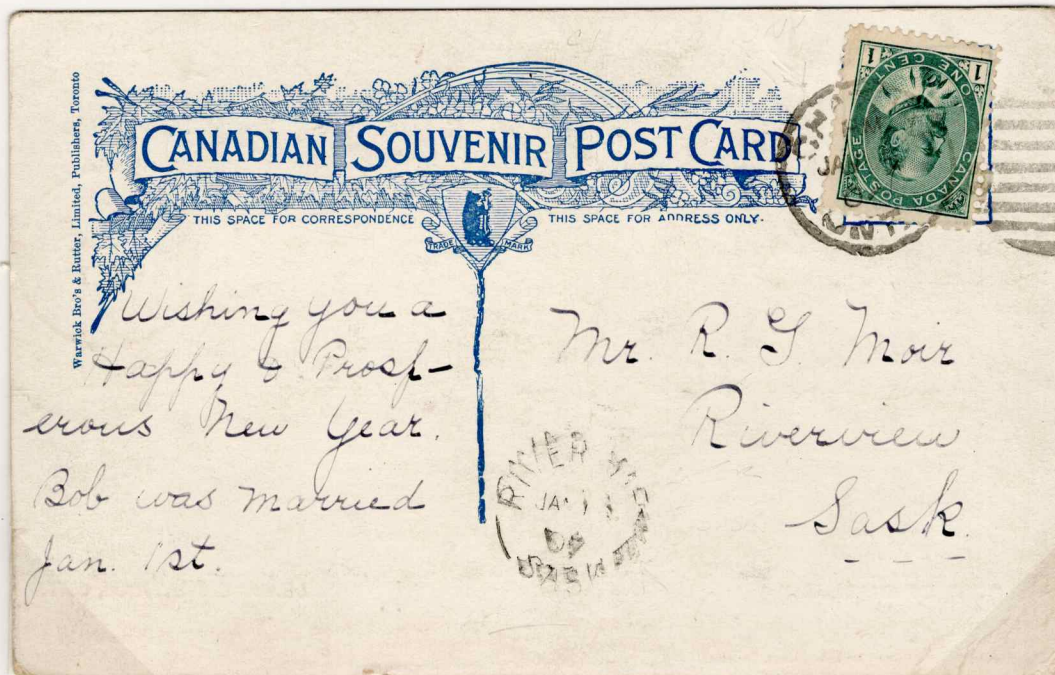 Warwick Bro's & Rutter, Limited, Publishers, Toronto
CANADIAN SOUVENIR POST CARD
THIS SPACE FOR CORRESPONDENCE
THIS SPACE FOR ADDRESS ONLY.
TRADE MARK
1 1
ONE CENT
CANADA POSTAGE
JA
ONT
Wishing you a
Happy & Prosp-
erous New Year.
Bob was married
Jan. 1st.
Mr. R. G. Moir
Riverview
Sask.
RIVER
JA
SASK